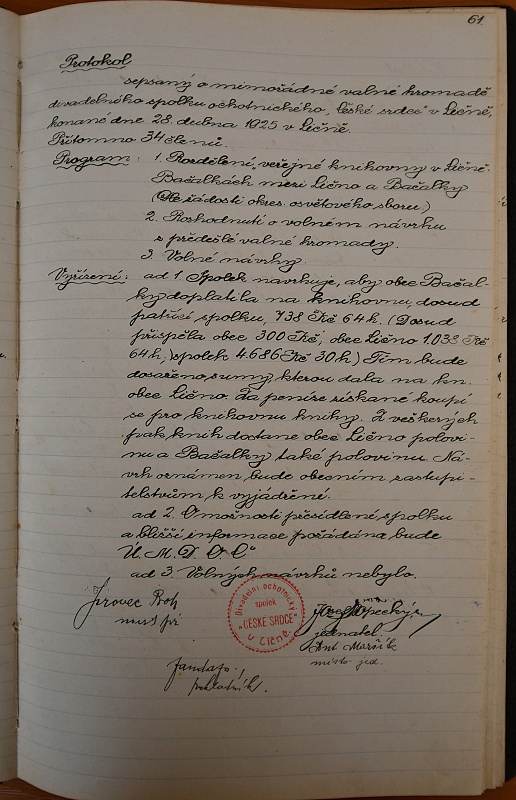 61.
Protokol
sepsaný o mimořádné valné hromadě
divadelního spolku ochotnického „České srdce" v Ličně,
konané dne 28. dubna 1925 v Ličně.
Přítomno 34 členů.
Program: 1. Rozdělení veřejné knihovny v Ličně-
Bačalkách mezi Lično a Bačalky
(Dle žádosti okres. osvětového sboru.)
2. Rozhodnutí o volném návrhu
z předešlé valné hromady.
3. Volné návrhy.
Vyřízení: ad 1. Spolek navrhuje, aby obec Bačal-
ky doplatila na knihovnu, dosud
patřící spolku, 738 Kč 64 h. (Dosud
přispěla obec 300 Kč, obec Lično 1.038 Kč
64 h, spolek 4.686 Kč 30 h.) Tím bude
dosaženo sumy, kterou dala na kn.
obec Lično. Za peníze získané koupí
se pro knihovnu knihy. Z veškerých
pak knih dostane obec Lično polovi-
nu a Bačalky také polovinu. Ná-
vrh oznámen bude obecním zastupi-
telstvům k vyjádření.
ad 2. O možnosti přesídlení spolku
a bližší informace požádána bude
Ú. M. D. O. Č.
ad 3. Volných návrhů nebylo.
Jirovec
Divadelní ochotnický
spolek
„ČESKÉ SRDCE"
v Ličně
jednatel.
Ant. Maršík
místo jed.
pokladník.